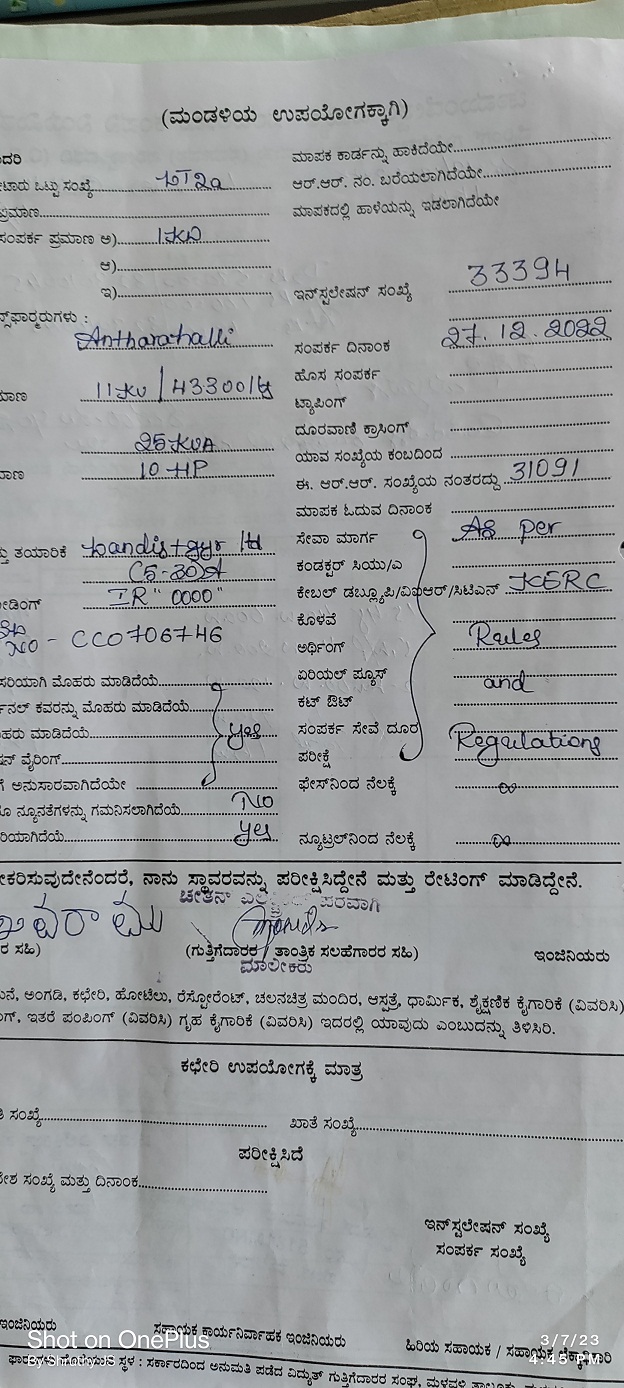 (ಮಂಡಳಿಯ ಉಪಯೋಗಕ್ಕಾಗಿ)
ದರಿ
ಮಾಪಕ ಕಾರ್ಡನ್ನು ಹಾಕಿದೆಯೇ
ಟಾರು ಒಟ್ಟು ಸಂಖ್ಯೆ LT2a
ಆರ್.ಆರ್. ನಂ. ಬರೆಯಲಾಗಿದೆಯೇ
ಪ್ರಮಾಣ
ಮಾಪಕದಲ್ಲಿ ಹಾಳೆಯನ್ನು ಇಡಲಾಗಿದೆಯೇ
ಸಂಪರ್ಕ ಪ್ರಮಾಣ ಅ) 1KW
ಆ)
ಇ)
ಇನ್‌ಸ್ಟಲೇಷನ್ ಸಂಖ್ಯೆ 33394
ನ್ಸ್‌ಫಾರ್ಮರುಗಳು :
Antharahalli
ಸಂಪರ್ಕ ದಿನಾಂಕ 27.12.2022
ಹೊಸ ಸಂಪರ್ಕ
ಮಾಣ 11KV / 43300/V
ಟ್ಯಾಪಿಂಗ್
ದೂರವಾಣಿ ಕ್ರಾಸಿಂಗ್
25 KVA
ಯಾವ ಸಂಖ್ಯೆಯ ಕಂಬದಿಂದ
ಮಾಣ 10 HP
ಈ. ಆರ್.ಆರ್. ಸಂಖ್ಯೆಯ ನಂತರದ್ದು 31091
ಮಾಪಕ ಓದುವ ದಿನಾಂಕ
ತ್ತು ತಯಾರಿಕೆ Landis+gyr ltd
ಸೇವಾ ಮಾರ್ಗ As per
(5-30)A
ಕಂಡಕ್ಟರ್ ಸಿಯು/ಎ
ೀಡಿಂಗ್ IR "0000"
ಕೇಬಲ್ ಡಬ್ಲ್ಯೂಪಿ/ವಿಐಆರ್/ಸಿಟಿಎಸ್ KERC
NO - CC0706746
ಕೊಳವೆ
ಅರ್ಥಿಂಗ್ Rules
ಸರಿಯಾಗಿ ಮೊಹರು ಮಾಡಿದೆಯೆ
ಏರಿಯಲ್ ಫ್ಯೂಸ್
ರ್ಮಿನಲ್ ಕವರನ್ನು ಮೊಹರು ಮಾಡಿದೆಯೆ
ಕಟ್ ಔಟ್ and
ಹರು ಮಾಡಿದೆಯೆ Yes
ಸಂಪರ್ಕ ಸೇವೆ ದೂರ
ಷನ್ ವೈರಿಂಗ್
ಪರೀಕ್ಷೆ Regulations
ಗೆ ಅನುಸಾರವಾಗಿದೆಯೇ
ಫೇಸ್‌ನಿಂದ ನೆಲಕ್ಕೆ ∞
ೂ ನ್ಯೂನತೆಗಳನ್ನು ಗಮನಿಸಲಾಗಿದೆಯೆ NO
ರಿಯಾಗಿದೆಯೆ Yes
ನ್ಯೂಟ್ರಲ್‌ನಿಂದ ನೆಲಕ್ಕೆ ∞
ೀಕರಿಸುವುದೇನೆಂದರೆ, ನಾನು ಸ್ಥಾವರವನ್ನು ಪರೀಕ್ಷಿಸಿದ್ದೇನೆ ಮತ್ತು ರೇಟಿಂಗ್ ಮಾಡಿದ್ದೇನೆ.
ಚೇತನ್ ಪರವಾಗಿ
ರ ಸಹಿ)
(ಗುತ್ತಿಗೆದಾರರ / ತಾಂತ್ರಿಕ ಸಲಹೆಗಾರರ ಸಹಿ)
ಇಂಜಿನಿಯರು
ಮಾಲೀಕರು
ುನೆ, ಅಂಗಡಿ, ಕಛೇರಿ, ಹೋಟೆಲು, ರೆಸ್ಟೋರೆಂಟ್, ಚಲನಚಿತ್ರ ಮಂದಿರ, ಆಸ್ಪತ್ರೆ, ಧಾರ್ಮಿಕ, ಶೈಕ್ಷಣಿಕ ಕೈಗಾರಿಕೆ (ವಿವರಿಸಿ)
ಗ್, ಇತರೆ ಪಂಪಿಂಗ್ (ವಿವರಿಸಿ) ಗೃಹ ಕೈಗಾರಿಕೆ (ವಿವರಿಸಿ) ಇದರಲ್ಲಿ ಯಾವುದು ಎಂಬುದನ್ನು ತಿಳಿಸಿರಿ.
ಕಛೇರಿ ಉಪಯೋಗಕ್ಕೆ ಮಾತ್ರ
ತಿ ಸಂಖ್ಯೆ
ಖಾತೆ ಸಂಖ್ಯೆ
ಪರೀಕ್ಷಿಸಿದೆ
ೇಶ ಸಂಖ್ಯೆ ಮತ್ತು ದಿನಾಂಕ
ಇನ್‌ಸ್ಟಲೇಷನ್ ಸಂಖ್ಯೆ
ಸಂಪರ್ಕ ಸಂಖ್ಯೆ
ಇಂಜಿನಿಯರು
ಸಹಾಯಕ ಕಾರ್ಯನಿರ್ವಾಹಕ ಇಂಜಿನಿಯರು
ಹಿರಿಯ ಸಹಾಯಕ / ಸಹಾಯಕ ಲೆಕ್ಕಾಧಿಕಾರಿ
ಸ್ಥಳ : ಸರ್ಕಾರದಿಂದ ಅನುಮತಿ ಪಡೆದ ವಿದ್ಯುತ್ ಗುತ್ತಿಗೆದಾರರ ಸಂಘ,
Shot on OnePlus
3/7/23
4:45 PM